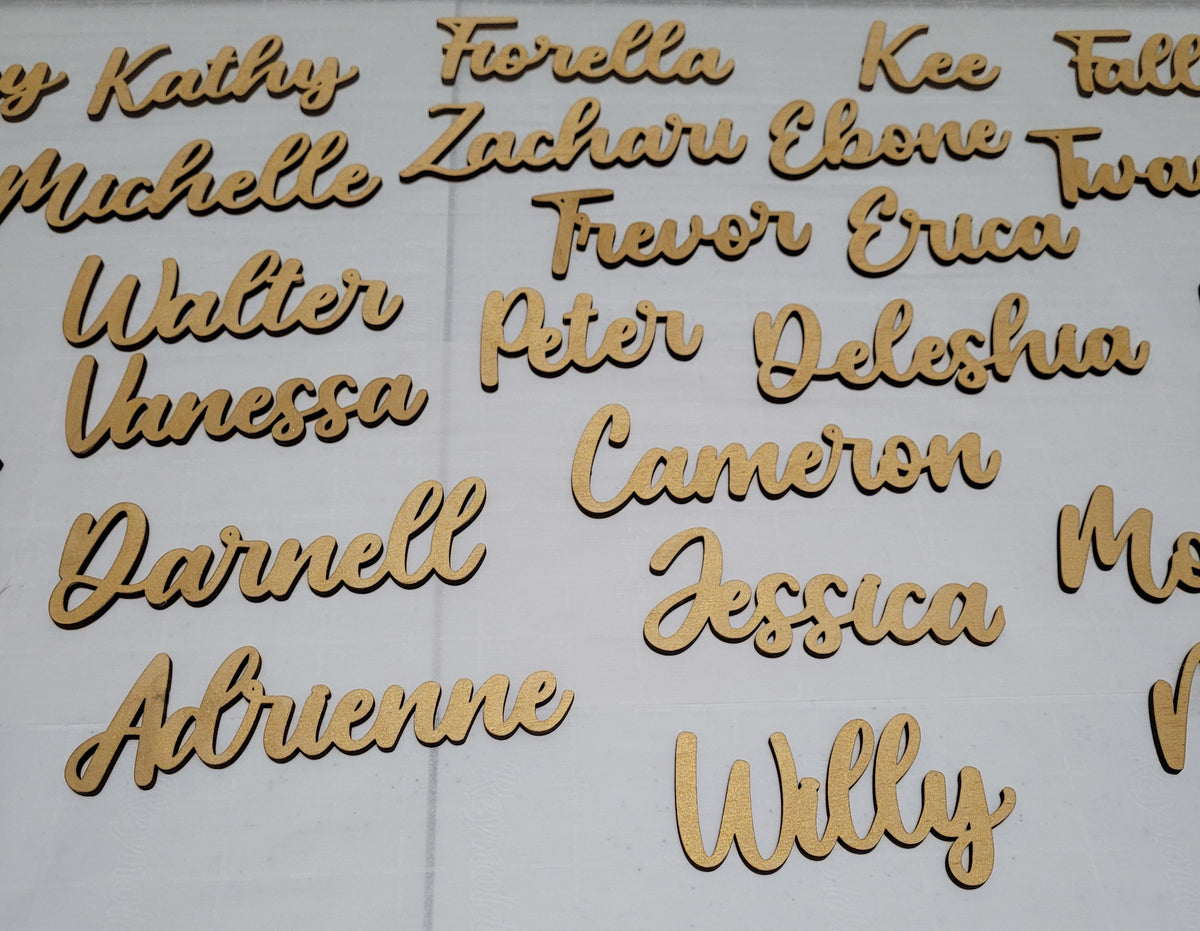 Kathy Fiorella Kee Fall
Michelle Zachari Ebone Twa
Trevor Erica
Walter Peter Deleshia
Vanessa Cameron
Darnell Jessica Mo
Adrienne Willy